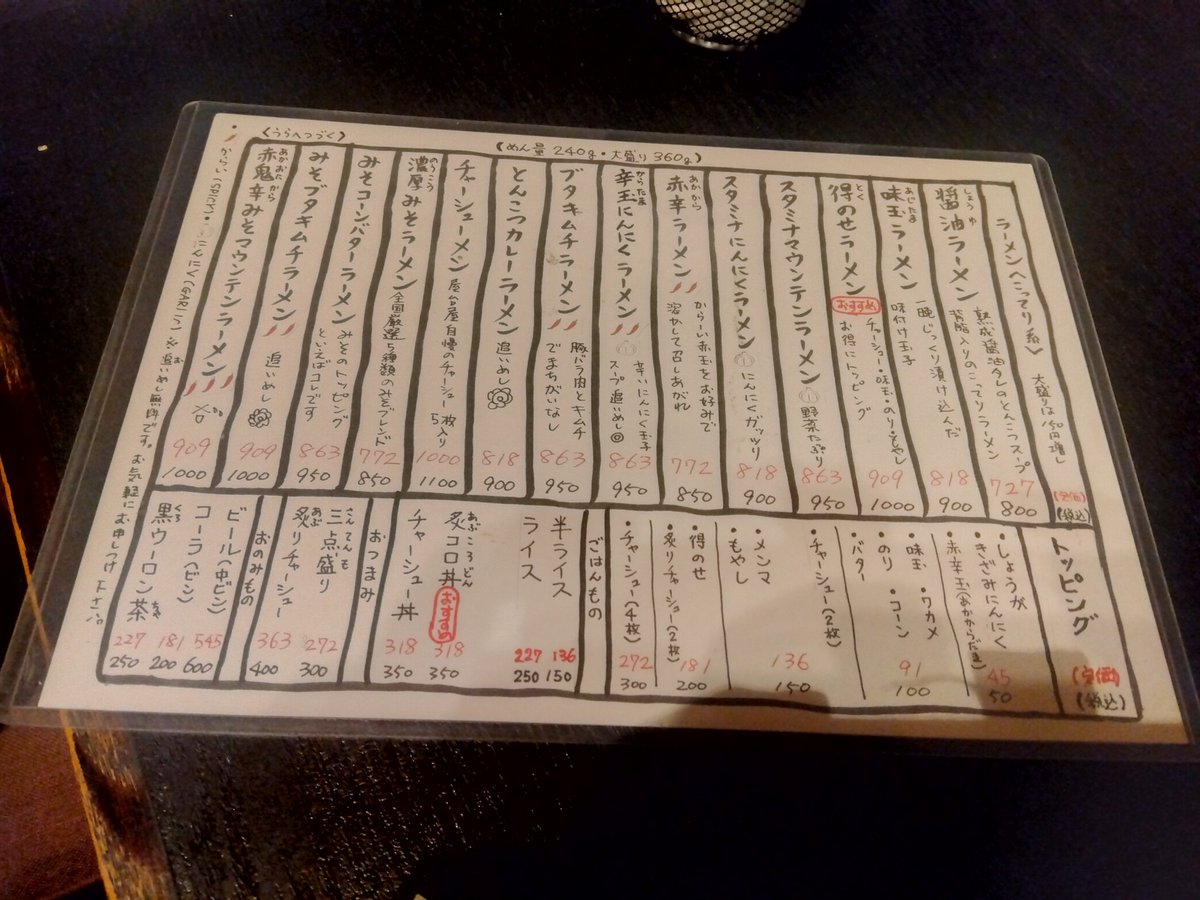 ラーメン〈こってり系〉 大盛りは150円増し (定価) (税込)
醤油ラーメン しょうゆ 熟成醤油タレのとんこつスープ
背脂入りのこってりラーメン 727 800
味玉ラーメン あじたま 一晩じっくり漬け込んだ
味付け玉子 818 900
得のせラーメン とく おすすめ チャーシュー・味玉・のり・もやし
お得にトッピング 909 1000
スタミナマウンテンラーメン 野菜たっぷり 863 950
スタミナにんにくラーメン にんにくガッツリ 818 900
赤辛ラーメン あかから からーい赤玉をお好みで
溶かして召しあがれ 772 850
辛玉にんにくラーメン からたま 辛いにんにく玉子
スープ追いめし◎ 863 950
ブタキムチラーメン 豚バラ肉とキムチ
でまちがいなし 863 950
とんこつカレーラーメン 追いめし 818 900
チャーシューメン 屋台屋自慢のチャーシュー
5枚入り 1000 1100
濃厚みそラーメン のうこう 全国厳選5種類のみそブレンド 772 850
みそコーンバターラーメン みそのトッピング
といえばコレです 863 950
みそブタキムチラーメン 追いめし 909 1000
赤鬼辛みそマウンテンラーメン あかおに から 909 1000
(めん量 240g・大盛り 360g)
〈うらへつづく〉
からい(SPICY)・にんにく(GARLIC) ※追いめし無料です。お気軽にお申しつけ下さい。
トッピング (定価) (税込)
・しょうが
・きざみにんにく
・赤辛玉(あかからだま) 45 50
・味玉 ・ワカメ
・のり ・コーン
・バター 91 100
・チャーシュー(2枚)
・メンマ
・もやし 136 150
・得のせ
・炙りチャーシュー(2枚) 181 200
・チャーシュー(4枚) 272 300
ごはんもの
半ライス 136 150
ライス 227 250
炙コロ丼 あぶころどん おすすめ 318 350
チャーシュー丼 318 350
おつまみ
三点盛り さんてんも 272 300
炙りチャーシュー あぶ 363 400
おのみもの
ビール(中ビン) 545 600
コーラ(ビン) 181 200
黒ウーロン茶 くろ ちゃ 227 250